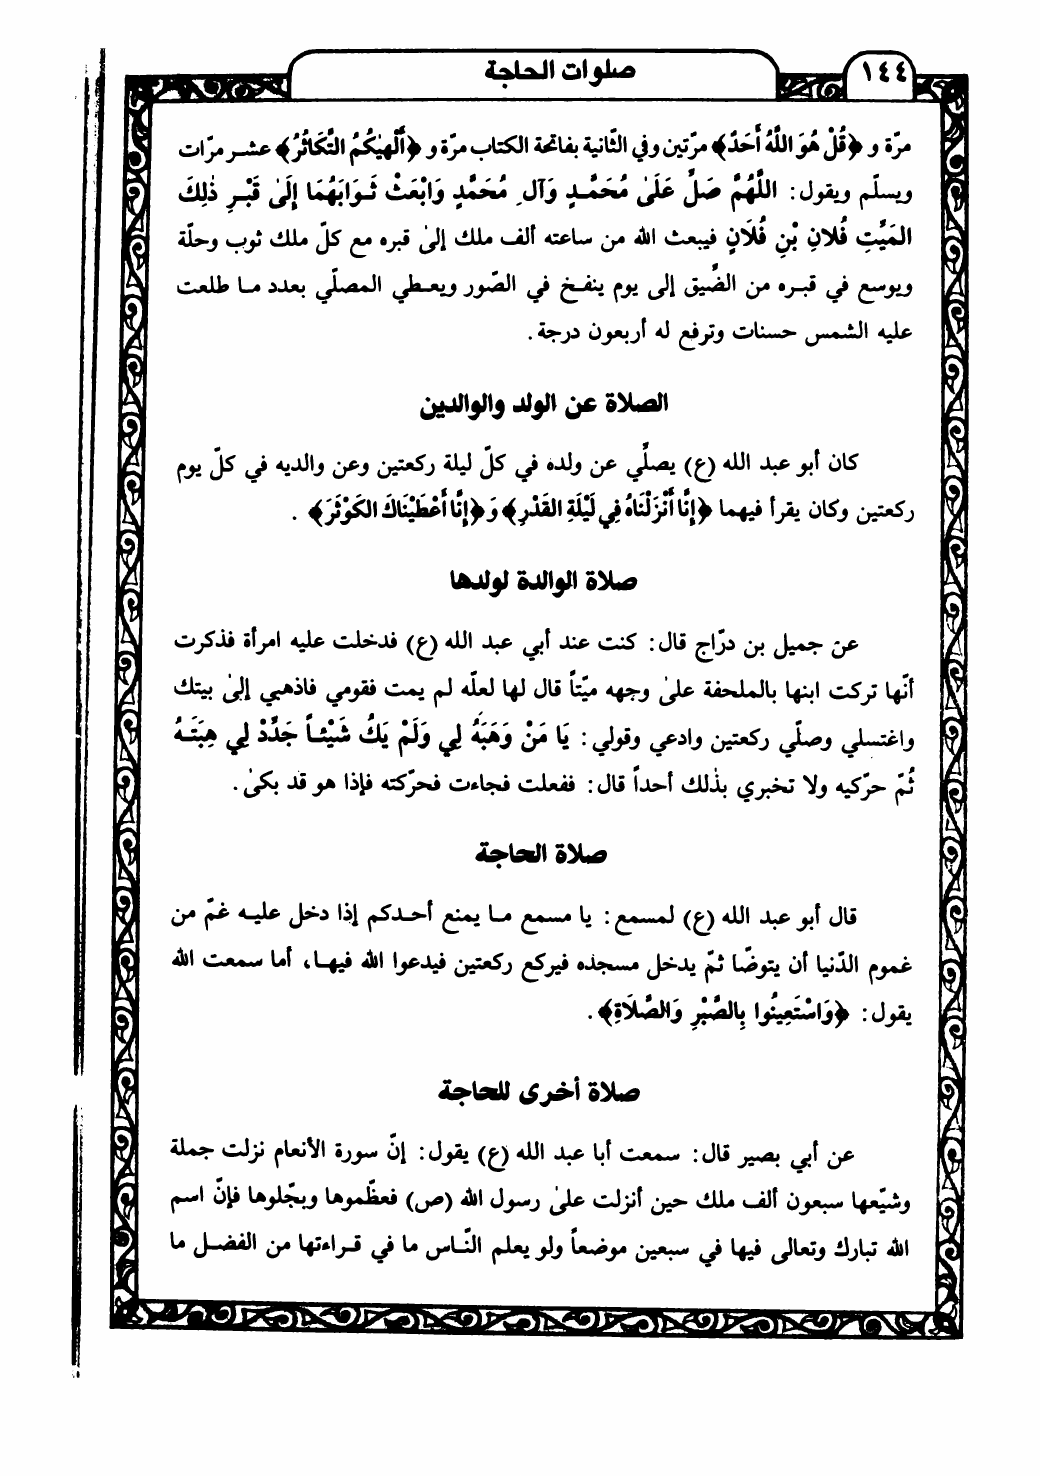 ١٤٤
صلوات الحاجة
مرّة و ﴿قُلْ هُوَ اللَّهُ أَحَدٌ﴾ مرّتين وفي الثّانية بفاتحة الكتاب مرّة و ﴿أَلْهٰيكُمُ التَّكَاثُرُ﴾ عشـر مرّات
ويسلّم ويقول: اللَّهُمَّ صَلِّ عَلَىٰ مُحَمَّـدٍ وَآلِ مُحَمَّدٍ وَابْعَثْ ثَـوَابَهُمَا إِلَىٰ قَبْـرِ ذٰلِكَ
المَيِّتِ فُلانِ بْنِ فُلَانٍ فيبعث الله من ساعته ألف ملك إلىٰ قبره مع كلّ ملك ثوب وحلّة
ويوسع في قبـره من الضِّيق إلى يوم ينفـخ في الصّور ويعـطي المصلّي بعدد مـا طلعت
عليه الشمس حسنات وترفع له أربعون درجة.
الصلاة عن الولد والوالدين
كان أبو عبد الله (ع) يصلّي عن ولده في كلّ ليلة ركعتين وعن والديه في كلّ يوم
ركعتين وكان يقرأ فيهما ﴿إِنَّا أَنْزَلْنَاهُ فِي لَيْلَةِ القَدْرِ﴾ وَ﴿إِنَّا أَعْطَيْنَاكَ الكَوْثَرَ﴾ .
صلاة الوالدة لولدها
عن جميل بن درّاج قال: كنت عند أبي عبد الله (ع) فدخلت عليه امرأة فذكرت
أنّها تركت ابنها بالملحفة علىٰ وجهه ميّتاً قال لها لعلّه لم يمت فقومي فاذهبي إلىٰ بيتك
واغتسلي وصلّي ركعتين وادعي وقولي: يَا مَنْ وَهَبَهُ لِي وَلَمْ يَكُ شَيْئـاً جَدِّدْ لِي هِبَتَـهُ
ثُمّ حرّكيه ولا تخبري بذٰلك أحداً قال: ففعلت فجاءت فحرّكته فإذا هو قد بكىٰ.
صلاة الحاجة
قال أبو عبد الله (ع) لمسمع: يا مسمع مـا يمنع أحـدكم إذا دخل عليـه غمّ من
غموم الدّنيا أن يتوضّا ثمّ يدخل مسجده فيركع ركعتين فيدعوا الله فيهـا، أما سمعت الله
يقول: ﴿وَاسْتَعِينُوا بِالصَّبْرِ وَالصَّلَاةِ﴾.
صلاة أخرى للحاجة
عن أبي بصير قال: سمعت أبا عبد الله (ع) يقول: إنّ سورة الأنعام نزلت جملة
وشيّعها سبعون ألف ملك حين أنزلت علىٰ رسول الله (ص) فعظّموها وبجّلوها فإنّ اسم
الله تبارك وتعالى فيها في سبعين موضعاً ولو يعلم النّـاس ما في قـراءتها من الفضـل ما